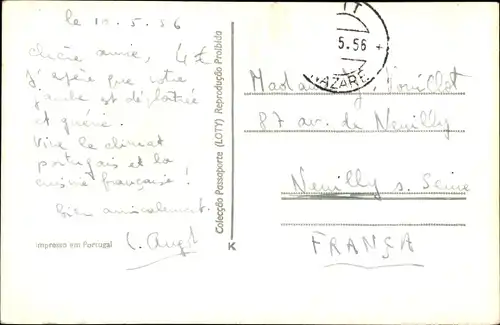 le 10.5.56
chère amie,
j'espère que votre
jambe est déplâtrée
et guérie.
Vive le climat
portugais et la
cuisine française !
bien amicalement.
Impresso em Portugal
Colecção Passaporte (LOTY) Reprodução Proibida
K
5.56
NAZARÉ
Madame
87 av. de Neuilly
Neuilly s. Seine
FRANÇA